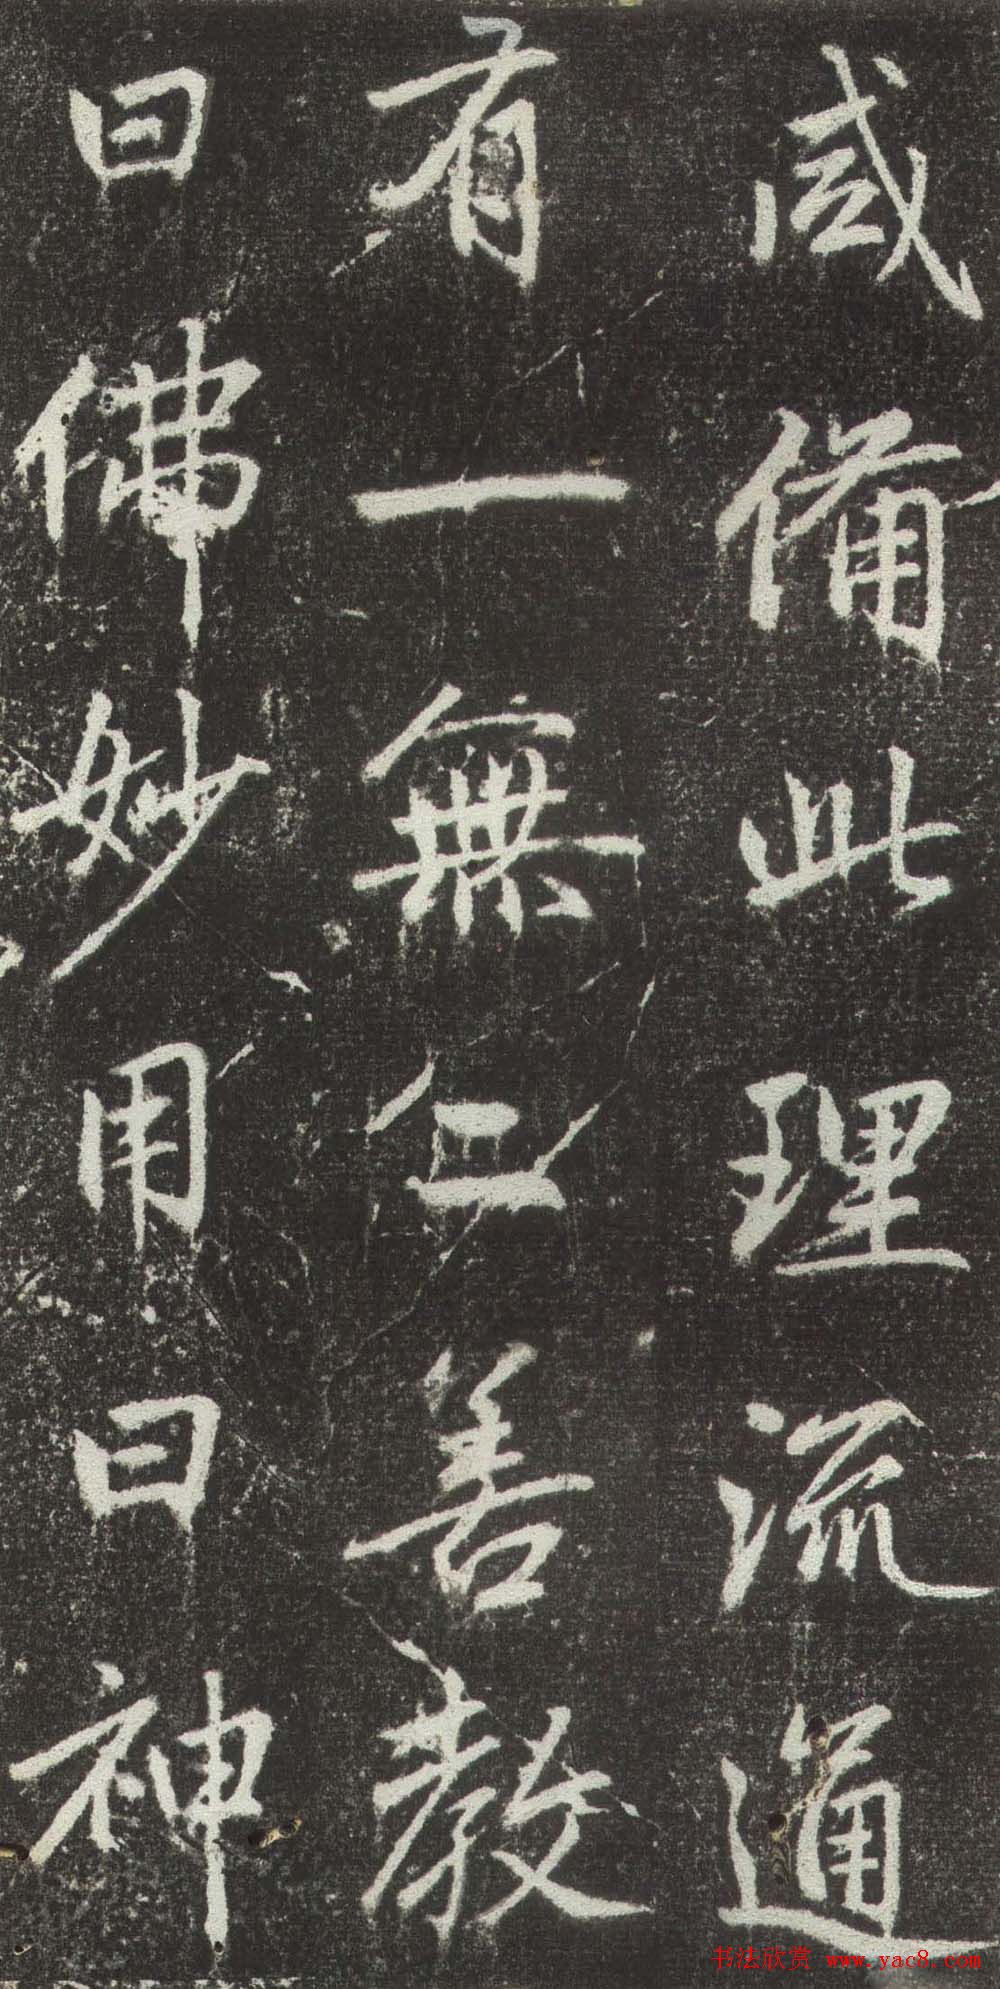 咸備此理流通
有一無二善教
曰佛妙用曰神
书法欣赏 www.yac8.com